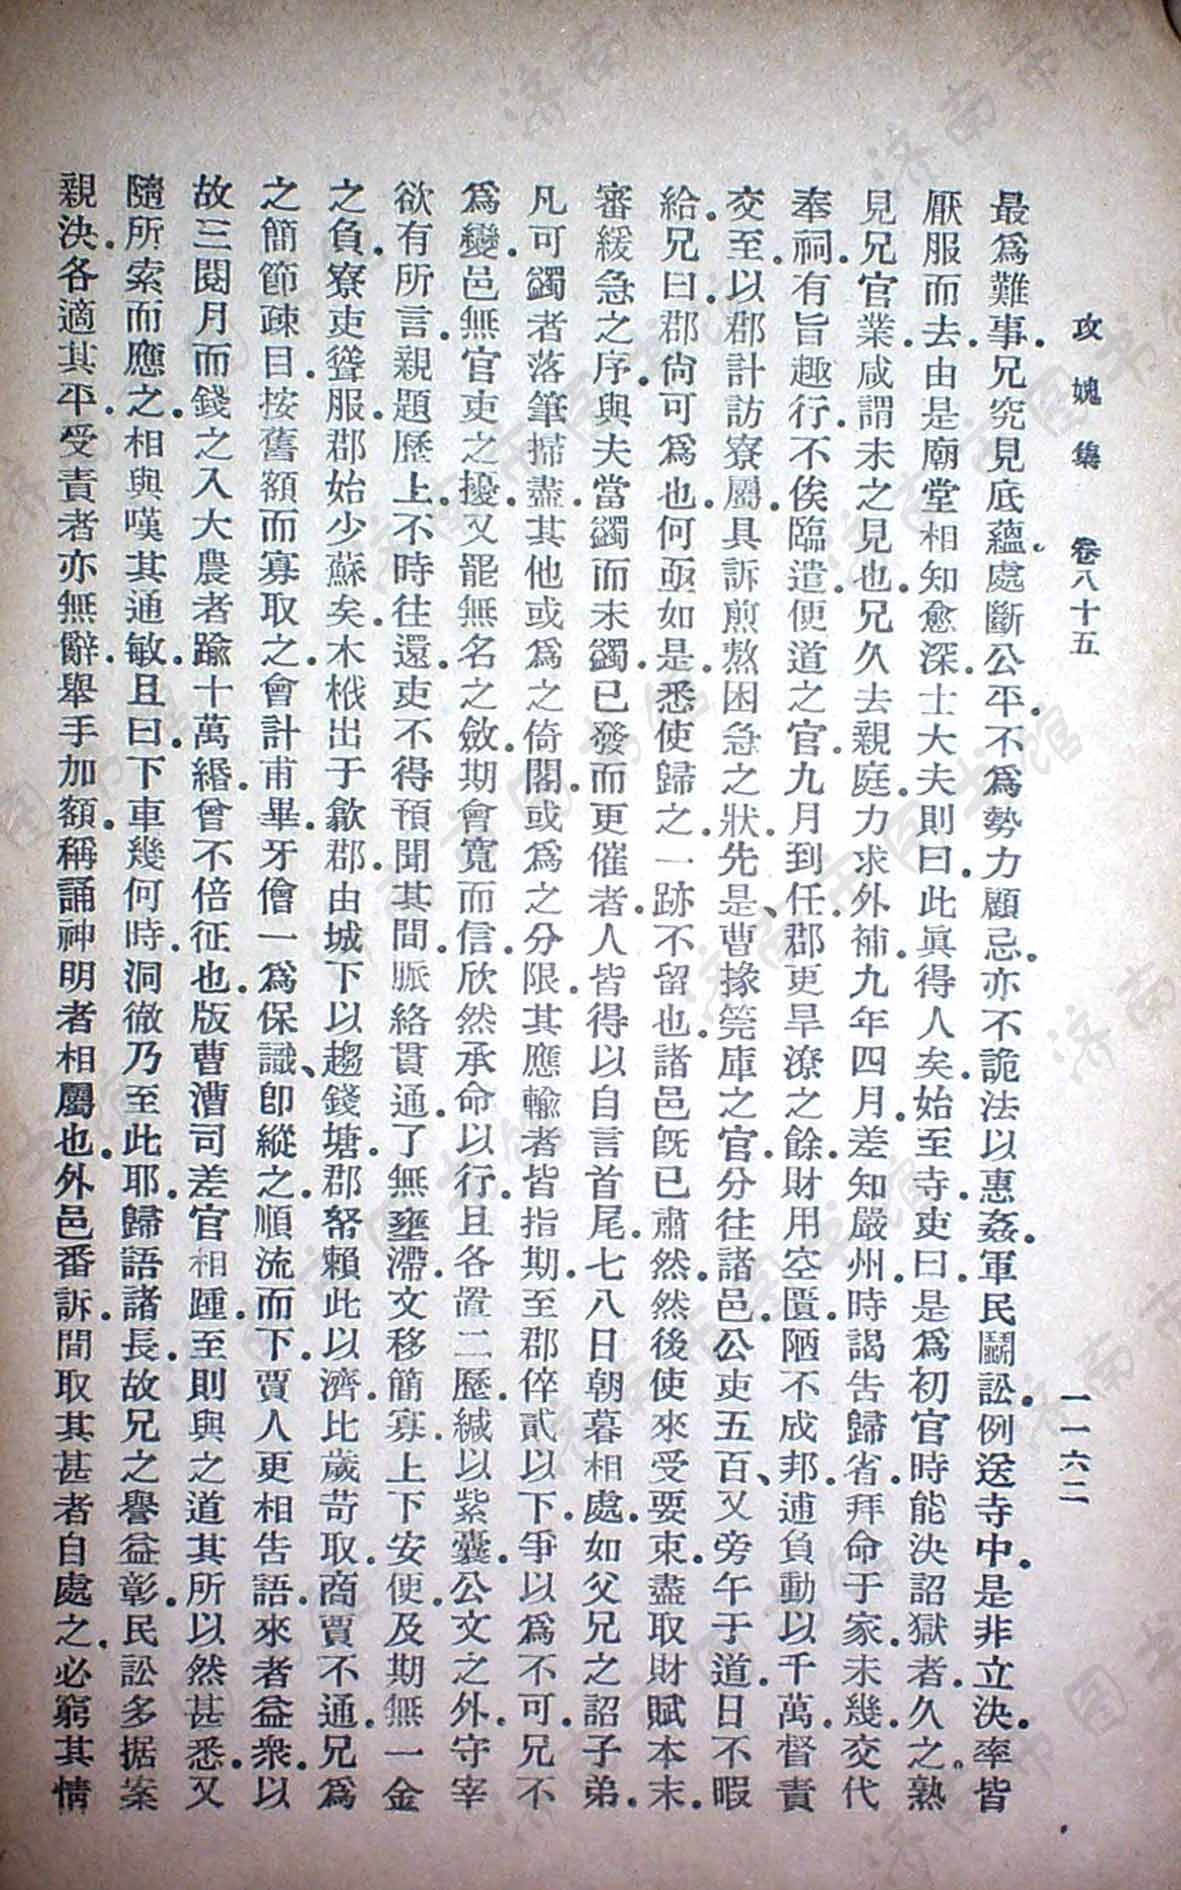 攻媿集 卷八十五 一一六二
最爲難事。兄究見底蘊。處斷公平。不爲勢力顧忌。亦不詭法以惠姦。軍民鬭訟。例送寺中。是非立決。率皆
厭服而去。由是廟堂相知愈深。士大夫則曰。此眞得人矣。始至寺。吏曰。是爲初官時能決詔獄者。久之。熟
見兄官業。咸謂未之見也。兄久去親庭。力求外補。九年四月。差知嚴州。時謁告歸省。拜命于家。未幾。交代
奉祠。有旨趣行。不俟臨遣。便道之官。九月到任。郡更旱潦之餘。財用空匱。陋不成邦。逋負動以千萬。督責
交至。以郡計訪寮屬。具訴煎熬困急之狀。先是、曹掾筦庫之官。分往諸邑。公吏五百、又旁午于道。日不暇
給。兄曰。郡尙可爲也。何亟如是。悉使歸之。一跡不留也。諸邑旣已肅然。然後使來受要束。盡取財賦本末。
審緩急之序。與夫當蠲而未蠲。已發而更催者。人皆得以自言首尾。七八日朝暮相處。如父兄之詔子弟。
凡可蠲者落筆掃盡。其他或爲之倚閣。或爲之分限。其應輸者皆指期。至郡倅貳以下。爭以爲不可。兄不
爲變。邑無官吏之擾。又罷無名之斂。期會寬而信。欣然承命以行。且各置二歷。緘以紫囊。公文之外。守宰
欲有所言。親題歷上。不時往還。吏不得預聞其間。脈絡貫通。了無壅滯。文移簡寡。上下安便。及期無一金
之負。寮吏聳服。郡始少蘇矣。木栰出于歙郡。由城下以趨錢塘。郡帑賴此以濟。比歲苛取。商賈不通。兄爲
之簡節疎目。按舊額而寡取之。會計甫畢。牙儈一爲保識、卽縱之。順流而下。賈人更相告語。來者益衆。以
故三閱月而錢之入大農者踰十萬緡。曾不倍征也。版曹漕司差官相踵。至則與之道其所以然甚悉。又
隨所索而應之。相與嘆其通敏。且曰。下車幾何時。洞徹乃至此耶。歸語諸長。故兄之譽益彰。民訟多据案
親決。各適其平。受責者亦無辭。舉手加額。稱誦神明者相屬也。外邑番訴。間取其甚者自處之。必窮其情